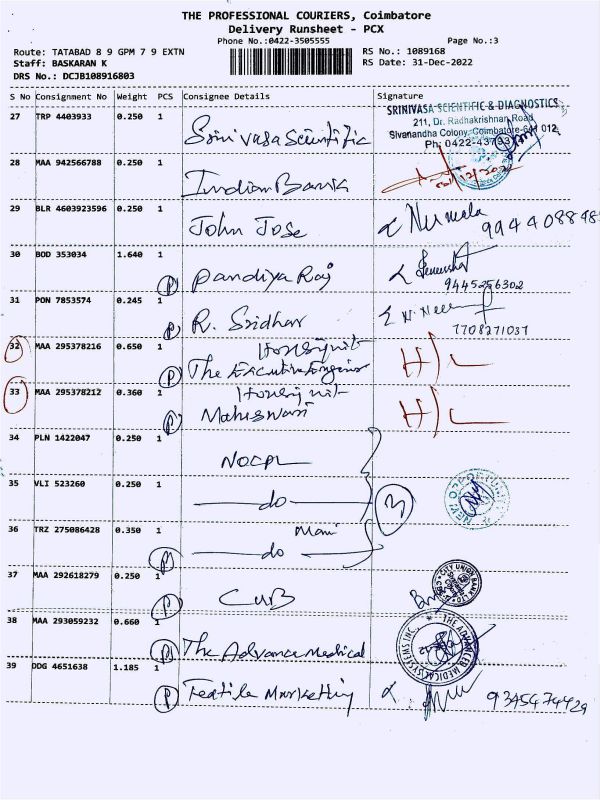 THE PROFESSIONAL COURIERS, Coimbatore
Delivery Runsheet - PCX
Phone No.:0422-3505555 Page No.:3
Route: TATABAD 8 9 GPM 7 9 EXTN RS No.: 1089168
Staff: BASKARAN K RS Date: 31-Dec-2022
DRS No.: DCJB108916803
S No Consignment No Weight PCS Consignee Details Signature
27 TRP 4403933 0.250 1 Srinivasa Scientific
SRINIVASA SCIENTIFIC & DIAGNOSTICS
211, Dr. Radhakrishnan Road
Sivanandha Colony, Coimbatore-641 012.
Ph: 0422-43793
28 MAA 942566788 0.250 1 Indian Bank
29 BLR 4603923596 0.250 1 John Jose Nirmala
99440884
30 BOD 353034 1.640 1 P Pandiya Raj
9445256302
31 PON 7853574 0.245 1 P R. Sridhar
7708271037
32 MAA 295378216 0.650 1 P Housing unit
The Executive Engineer H/L
33 MAA 295378212 0.360 1 P Housing unit
Maheswari H/L
34 PLN 1422047 0.250 1 NOCPL
35 VLI 523260 0.250 1 do 3
36 TRZ 275086428 0.350 1 P Mani
do
37 MAA 292618279 0.250 1 P CUB
CITY UNION BANK
38 MAA 293059232 0.660 1 P The Advance Medical
THE ADVANCED MEDICAL SYSTEMS INC.
39 DDG 4651638 1.185 1 P Textile Marketing 9345674429